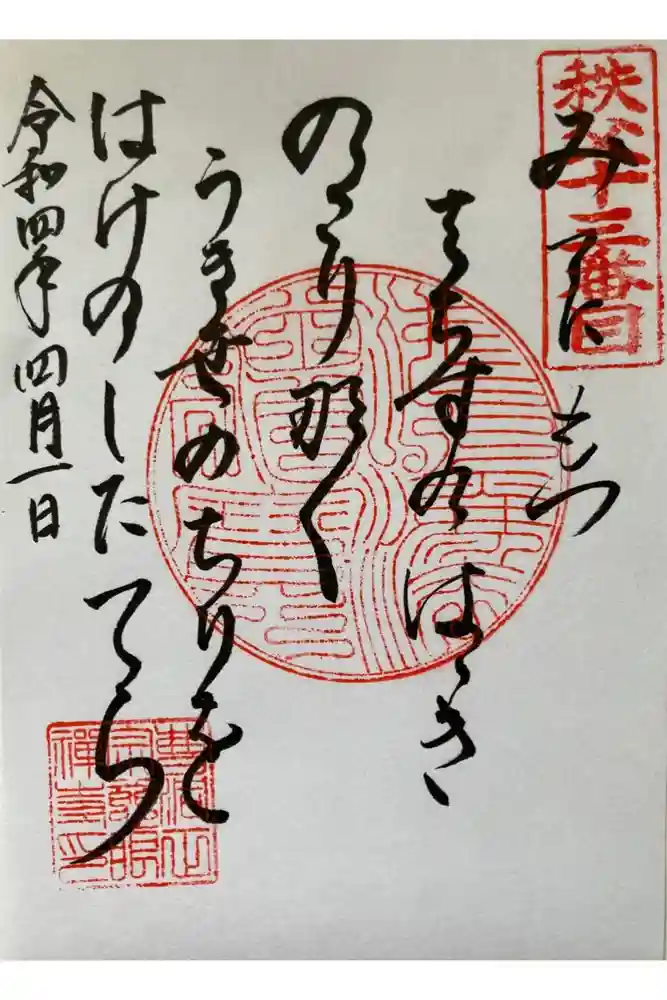 秩父十三番目
みてにもつ
はちすのはゝき
のこり那く
うき世のちりを
はけのしたてら
令和四年四月一日